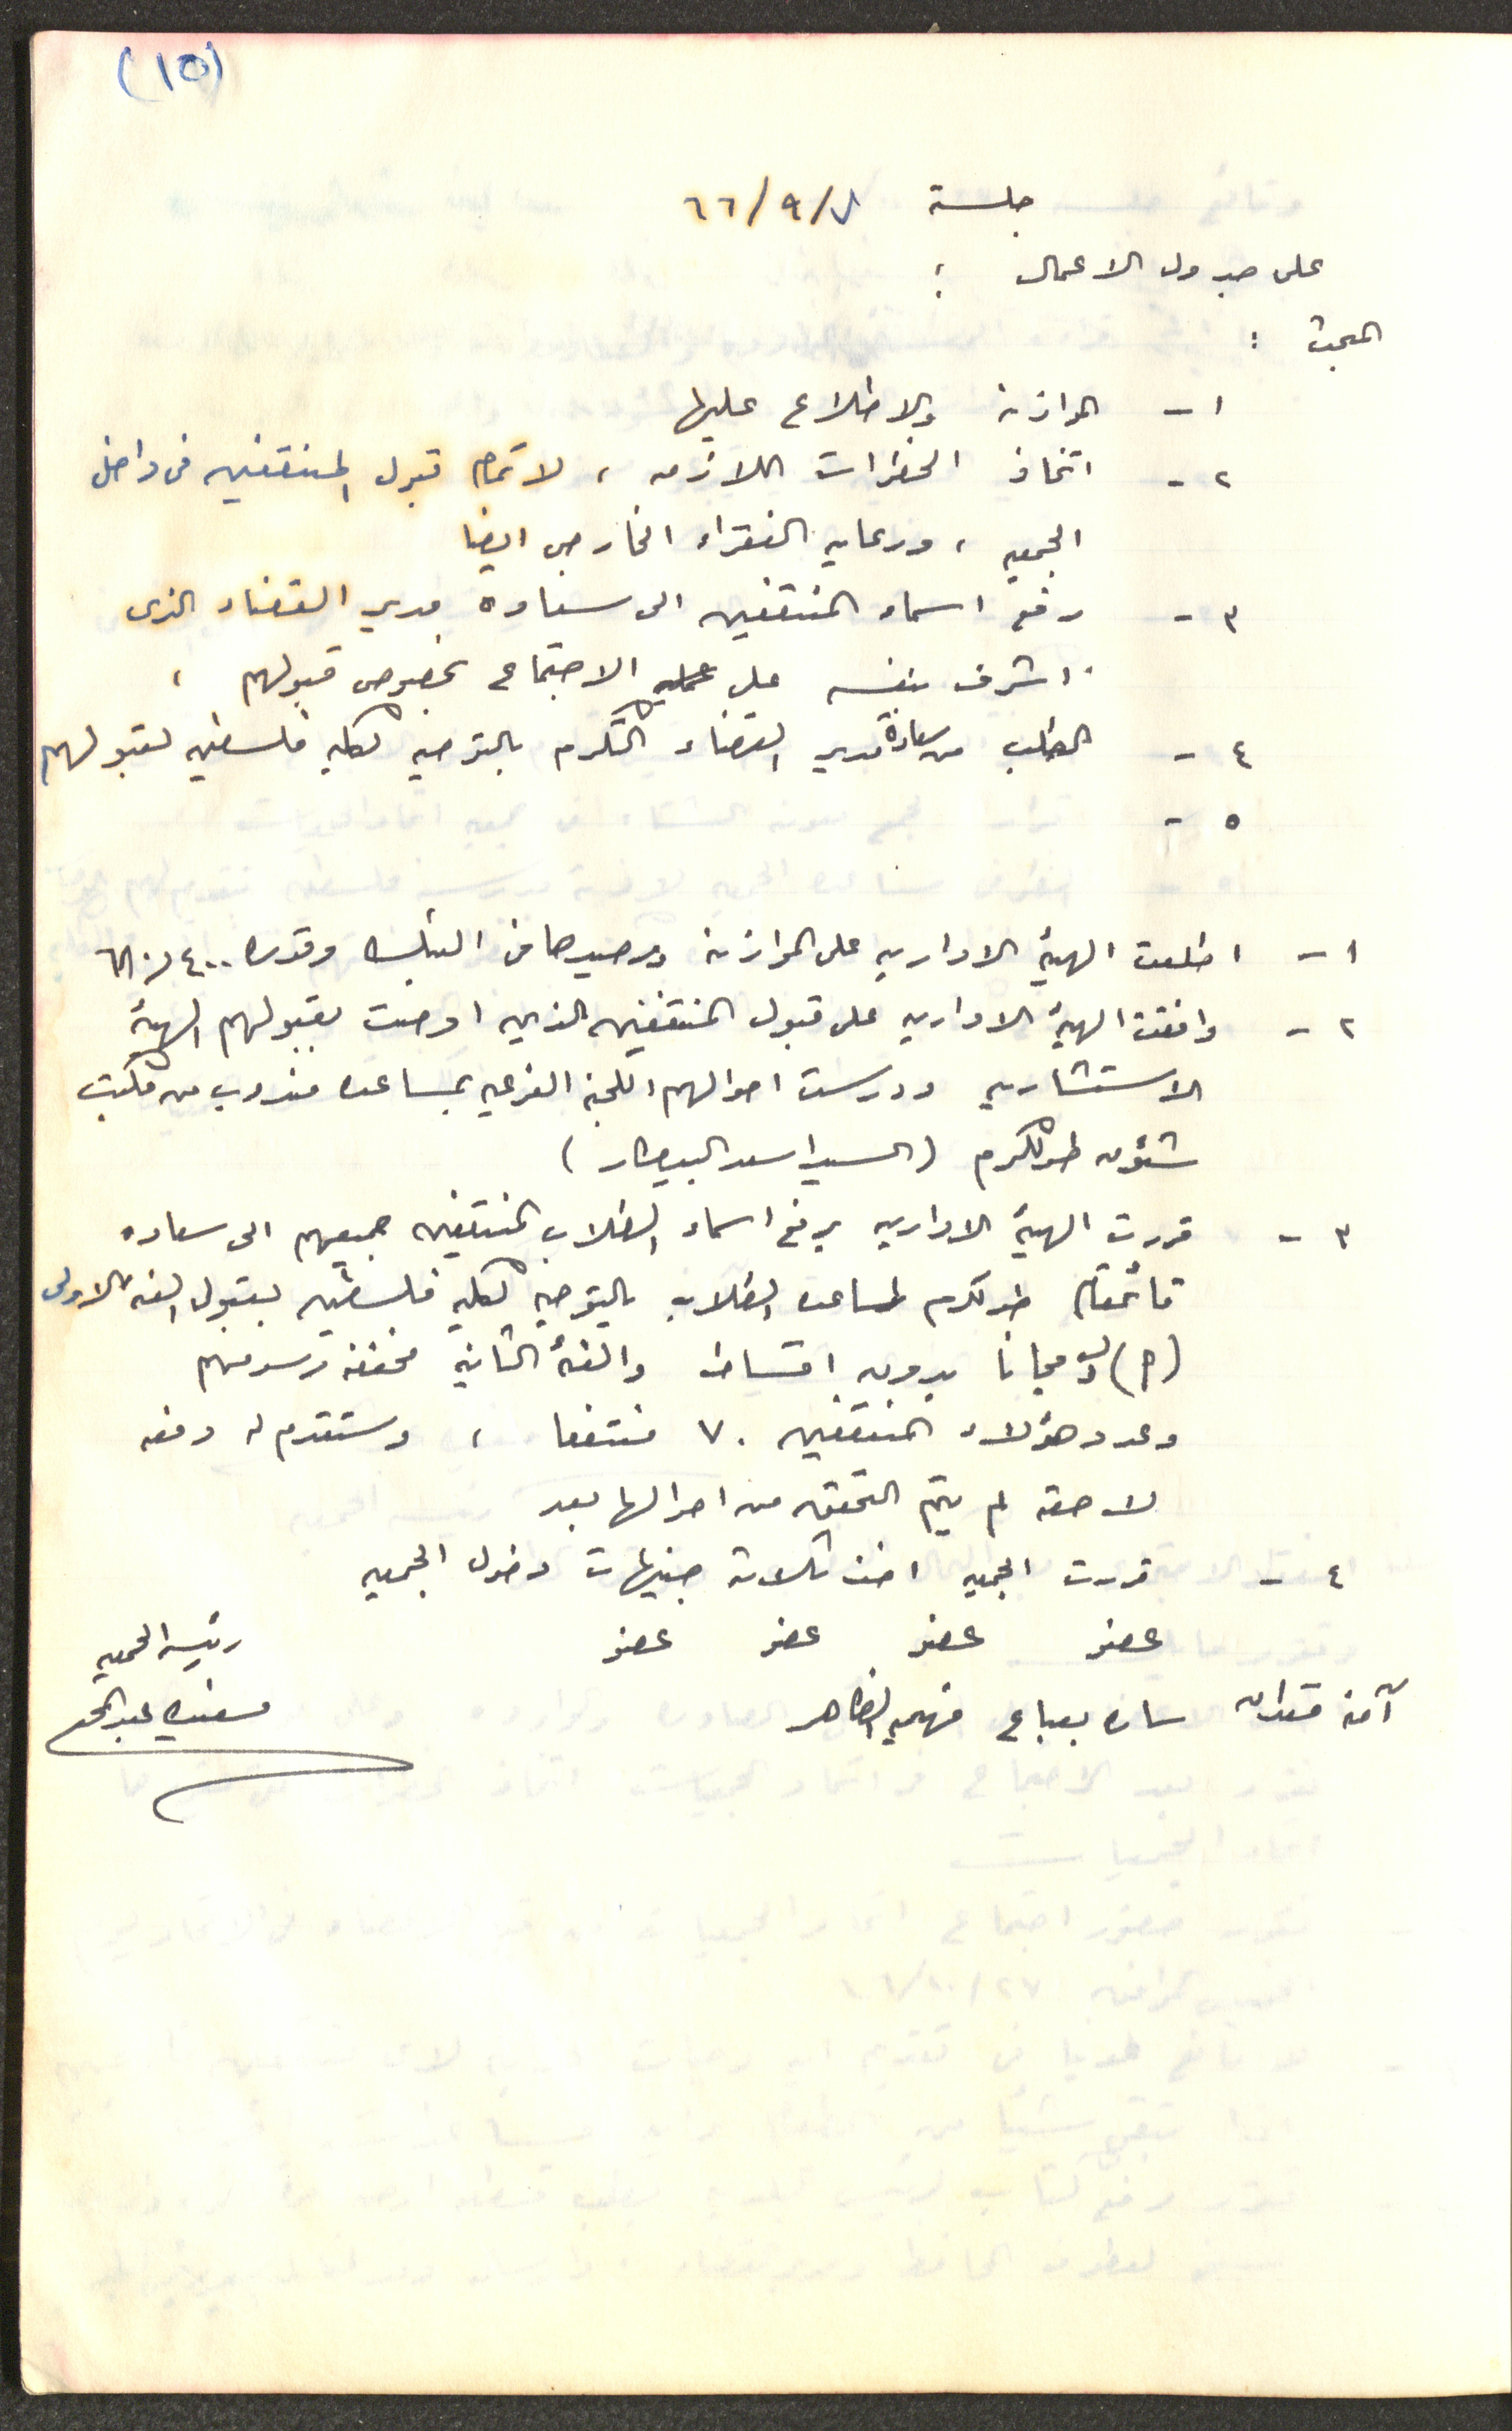 (١٥)
جلسة ٧/٩/٦٦
على جدول الاعمال :
البحث :
١ - الموازنة والاطلاع عليها
٢ - اتخاذ الخطوات اللازمه ، لاتمام قبول المنتفعين في داخل
الجمعيه ، ورعايه الفقراء الخارجى ايضا
٣ - رفع اسماء المنتفعين الى سعادة مدير القضاء الذى
اشرف بنفسه على عمليه الاجتماع بخصوص قبولهم ،
٤ - الطلب من سعادة مدير القضاء التكرم بالتوصيه لكليه فلسطين لقبولهم
٥ -
١ - اطلعت الهيئة الاداريه على الموازنة ورصيدها في البنك وقدره
٢ - وافقت الهيئة الاداريه على قبول المنتفعين الذين اوصت بقبولهم الهيئة
الاستشاريه ودرست احوالهم اللجنة الفرعيه بمساعده مندوب من مكتب
شئون طولكرم (السيد اسعد البيطار)
٣ - قررت الهيئة الاداريه برفع اسماء الطلاب المنتفعين جميعهم الى سعاده
قائمقام طولكرم لمساعده الطلاب بالتوصيه لكليه فلسطين بقبول الفئه الاولى
(م) مجانا بدون اقساط والفئة الثانية مخفضة رسومهم
وعدد هؤلاء المنتفعين ٧٠ منتفعا ، وستقدم له دفعه
لاحقه لم يتم التحقق من احوالها بعد
٤ - قررت الجمعيه اخذ ثلاثة جنيهات دخول الجمعيه
عضو عضو عضو عضو رئيسة الجمعيه
آمنة قعدان ساره بعباع فهميه الظاهر مسعده عبد الحق